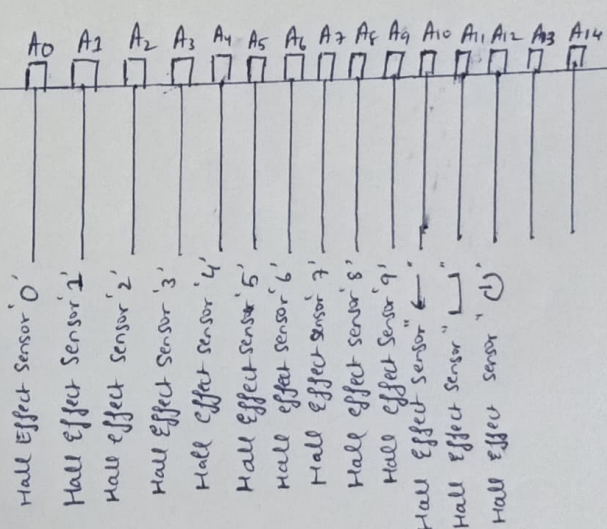 A0 A1 A2 A3 A4 A5 A6 A7 A8 A9 A10 A11 A12 A13 A14
Hall Effect Sensor '0'
Hall Effect Sensor '1'
Hall effect sensor '2'
Hall Effect Sensor '3'
Hall effect sensor '4'
Hall Effect sensor '5'
Hall effect sensor '6'
Hall Effect sensor '7'
Hall effect sensor '8'
Hall Effect sensor '9'
Hall Effect sensor "←"
Hall Effect sensor "⎵"
Hall Effect sensor "⏻"